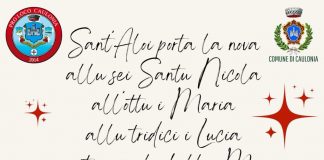 PRO LOCO CAULONIA
2014
COMUNE DI CAULONIA
Sant'Aloi porta la nova
allu sei Santu Nicola
all'ottu i Maria
allu tridici i Lucia